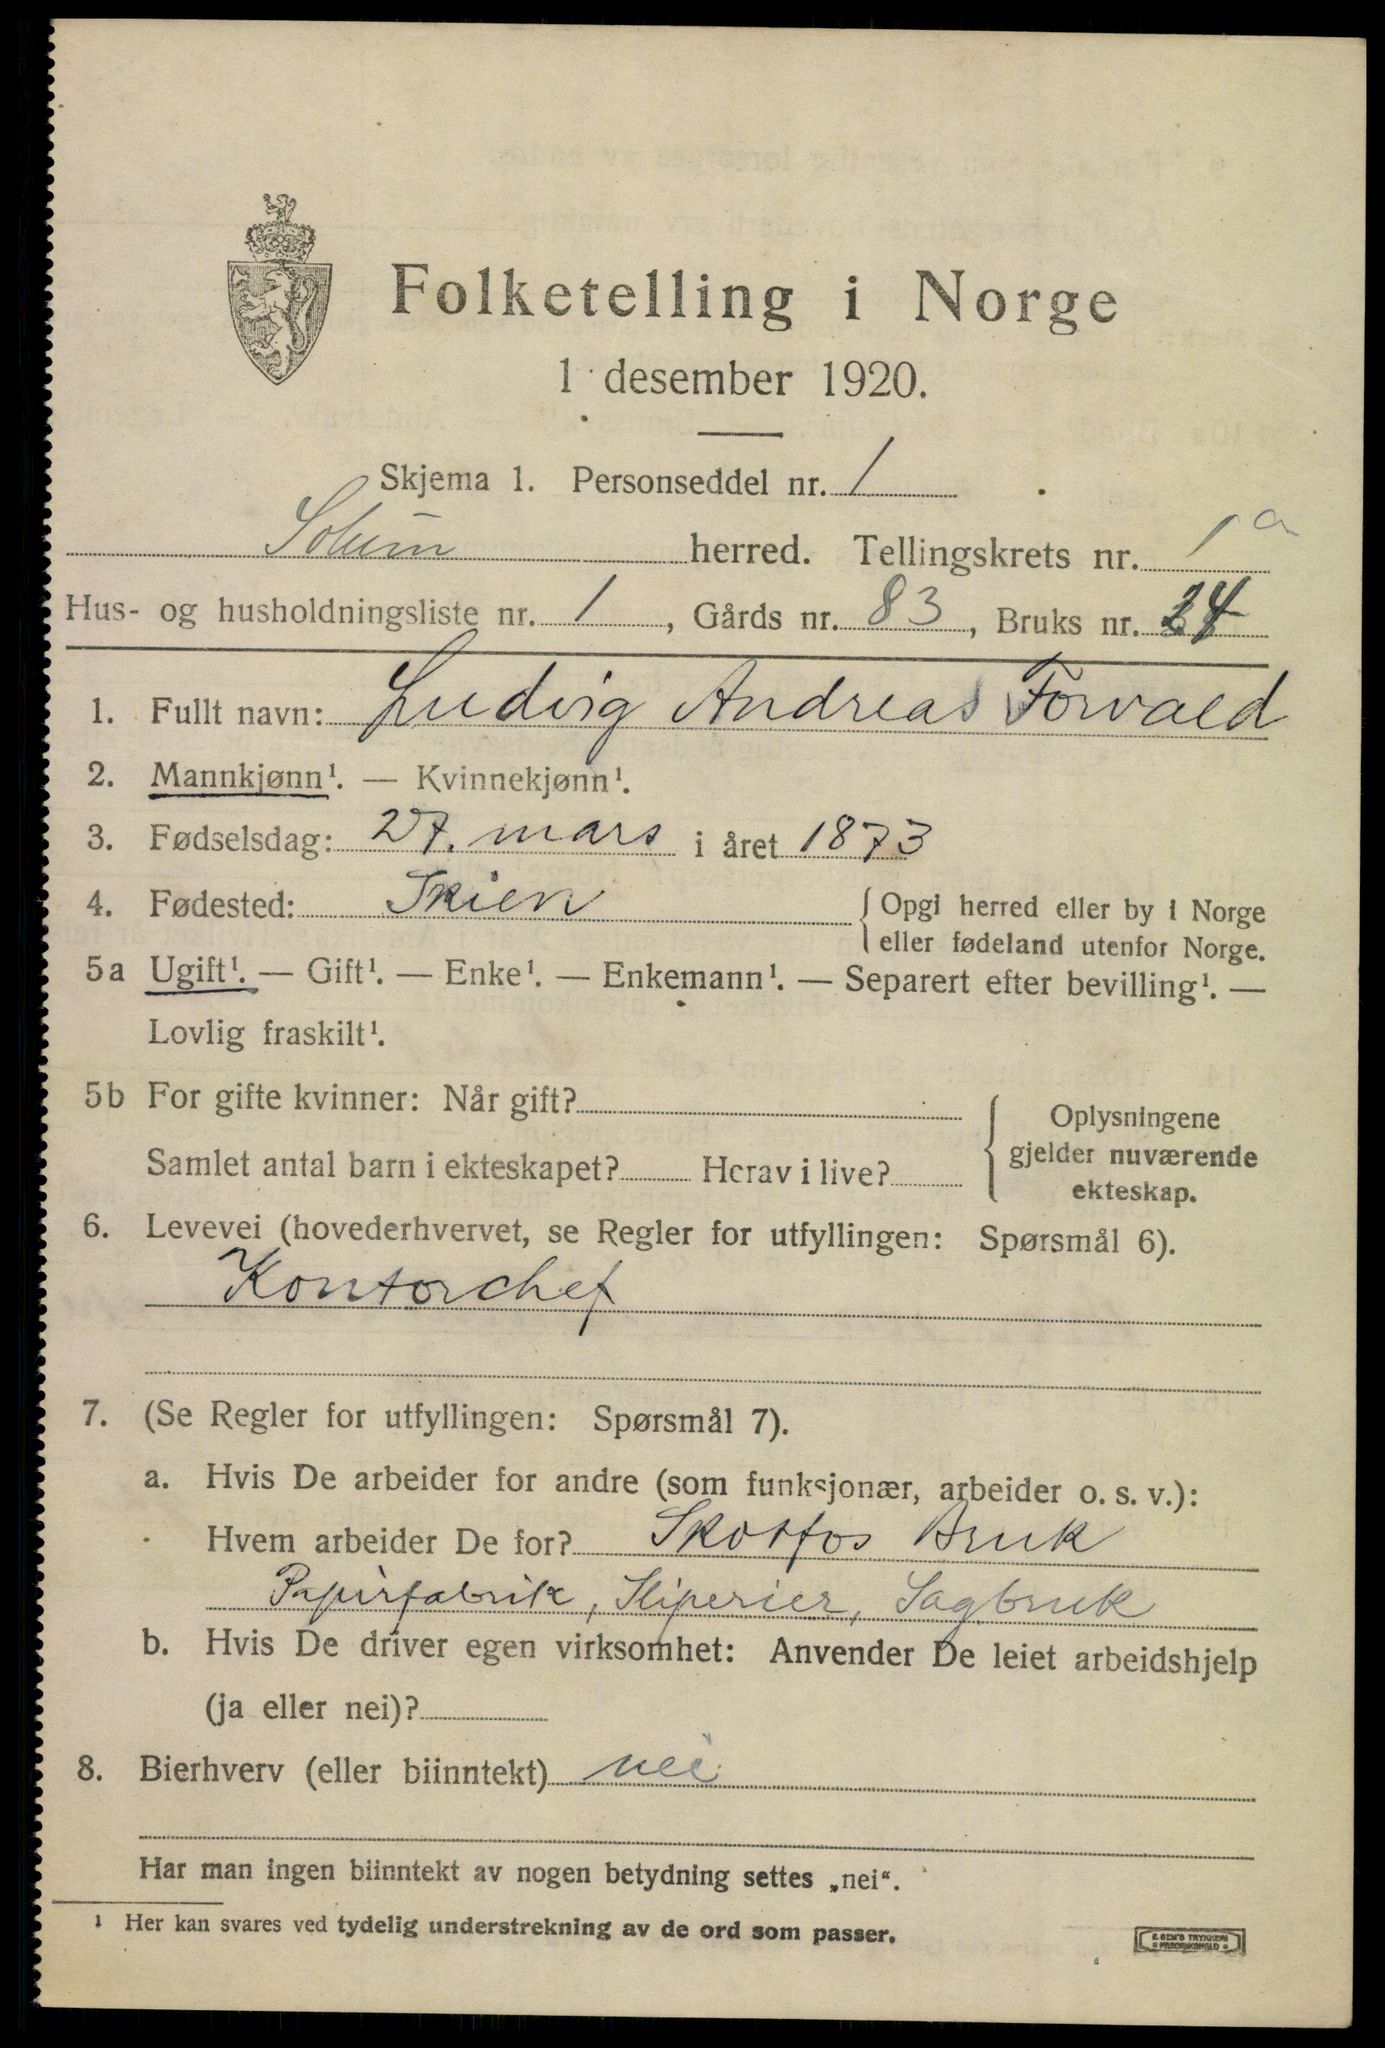 Folketelling i Norge
1 desember 1920.
Skjema 1. Personseddel nr. 1
Solum herred. Tellingskrets nr. 1 a
Hus- og husholdningsliste nr. 1, Gårds nr. 83, Bruks nr. 24
1. Fullt navn: Ludvig Andreas Forvald
2. Mannkjønn¹. — Kvinnekjønn¹.
3. Fødselsdag: 27. mars i året 1873
4. Fødested: Skien { Opgi herred eller by i Norge
eller fødeland utenfor Norge.
5a Ugift¹. — Gift¹. — Enke¹. — Enkemann¹. — Separert efter bevilling¹. —
Lovlig fraskilt¹.
5b For gifte kvinner: Når gift?
Samlet antal barn i ekteskapet? Herav i live?
Oplysningene
gjelder nuværende
ekteskap.
6. Levevei (hovederhvervet, se Regler for utfyllingen: Spørsmål 6).
Kontorchef
7. (Se Regler for utfyllingen: Spørsmål 7).
a. Hvis De arbeider for andre (som funksjonær, arbeider o. s. v.):
Hvem arbeider De for? Skotfos Bruk
Papirfabrik, Sliperier, Sagbruk
b. Hvis De driver egen virksomhet: Anvender De leiet arbeidshjelp
(ja eller nei)?
8. Bierhverv (eller biinntekt) nei
Har man ingen biinntekt av nogen betydning settes „nei“.
¹ Her kan svares ved tydelig understrekning av de ord som passer.